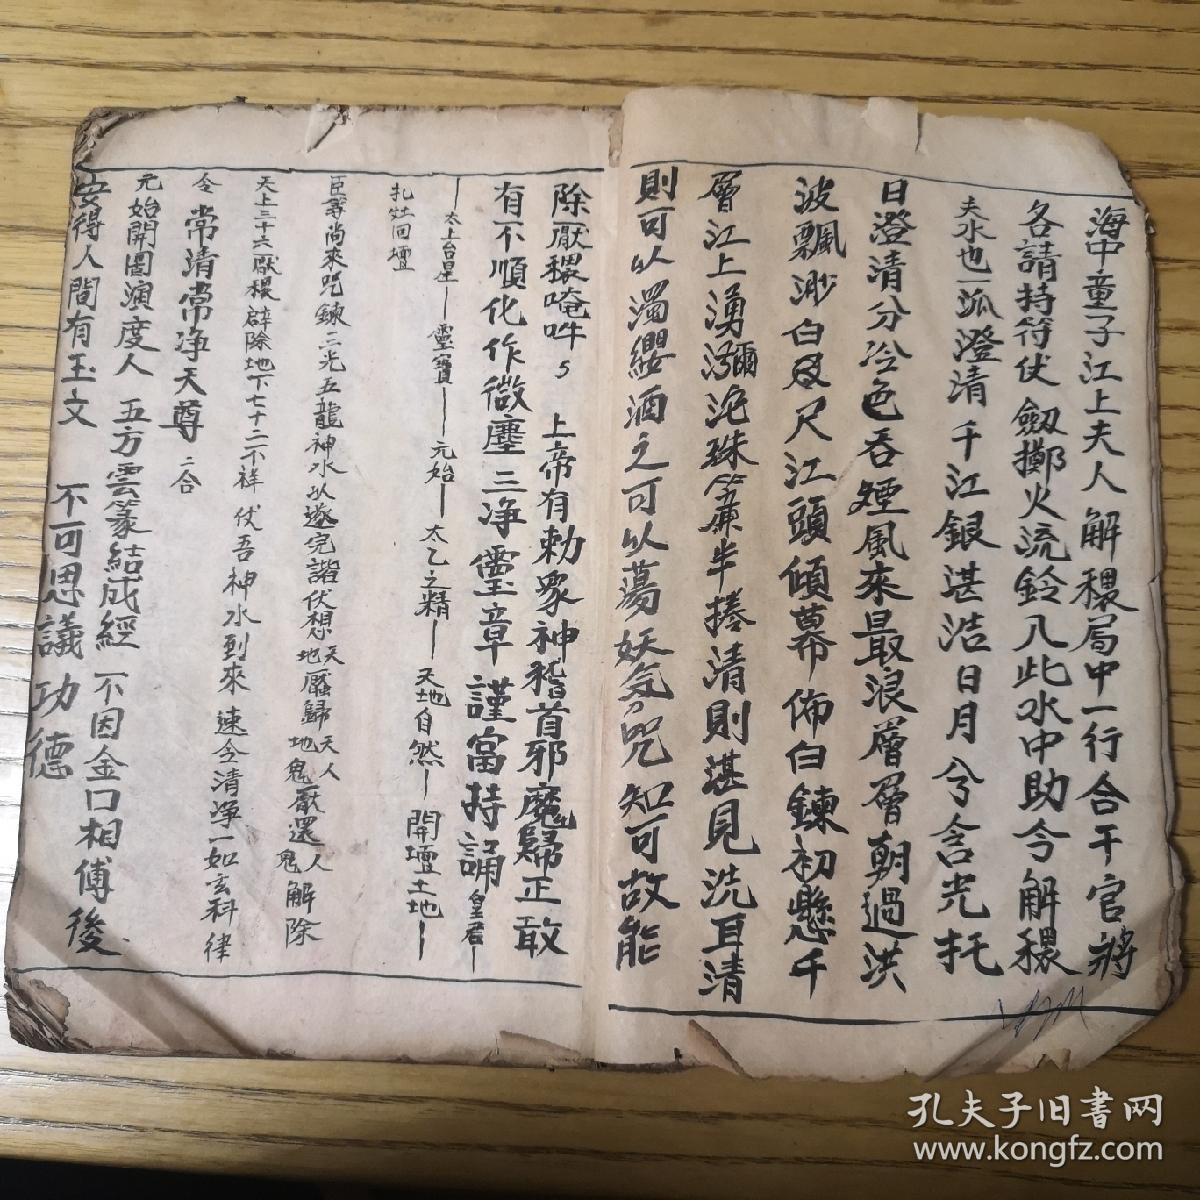 海中童子江上夫人解穢局中一行合干官將
各請持符伏劔擲火流鈴入此水中助今解穢
夫水也一泒澄清千江銀湛浩日月兮含光托
日澄清分冷色吞煙風來最浪層層朝過洪
波飄渺白及尺江頭傾幕佈白鍊初懸千
層江上湧瀰沱珠簾半捲清則湛見洗耳清
則可以濁纓酒之可以蕩妖氛咒知可故能
除厭穢唵吽 上帝有勅眾神稽首邪魔歸正敢
有不順化作微塵三净靈章謹當持誦皇君
太上台星 靈寶 元始 太乙之精 天地自然 開壇土地
扎灶回壇
臣等尚來咒鍊三光五龍神水以遂完諧伏想天厭歸天地厭歸地人厭還人鬼厭還鬼解除
天上三十六厭穢辟除地下七十二不祥伏吾神水到來速令清淨一如玄科律
令 常清常净天尊 二合
元始開圖演度人 五方雲篆結成經 不因金口相傅後
安得人間有玉文 不可思議功德
孔夫子旧书网
www.kongfz.com